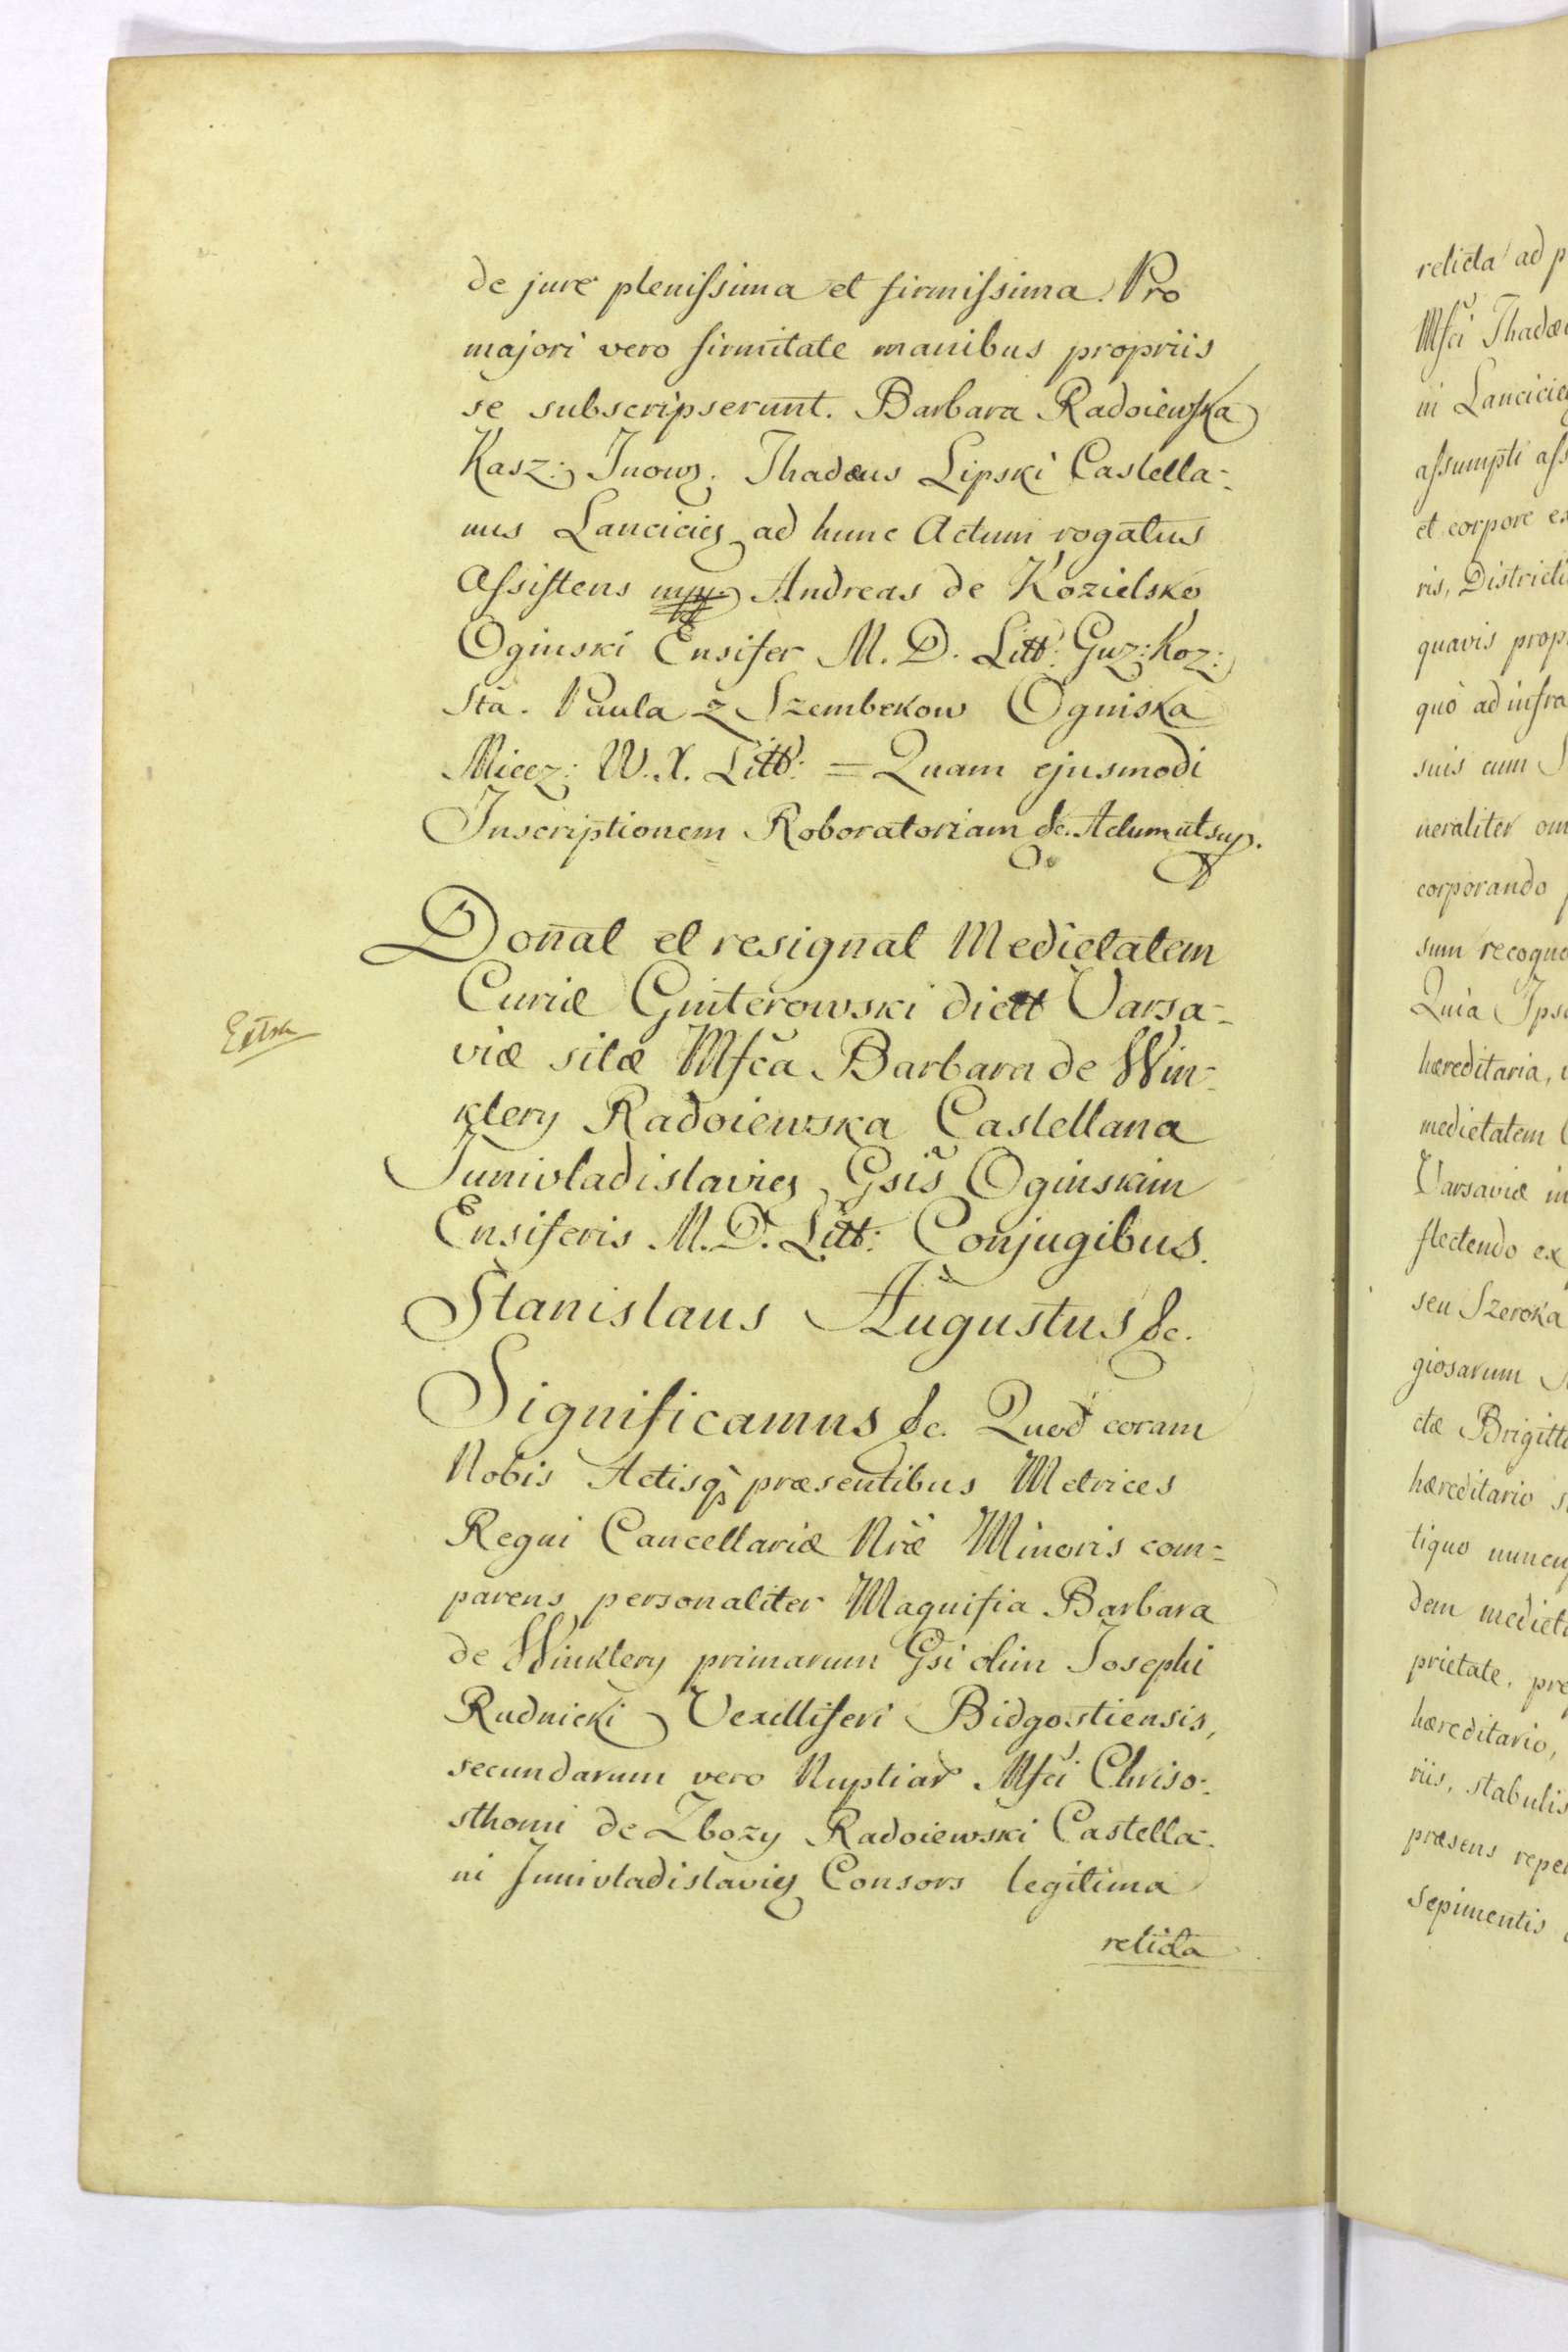 de jure plenissima et firmissima. Pro
majori vero firmitate manibus propriis
se subscripserunt. Barbara Radoiewska
Kasz: Inow: Thadæus Lipski Castella-
nus Lancicieȝ ad hunc Actum rogatus
Assistens mpp. Andreas de Kozielsko
Oginski Ensifer M. D. Litt: Guz: Koz:
Sta. Paula z Szembekow Oginska
Miecz: W. X. Litt: = Quam ejusmodi
Inscriptionem Roboratoriam &c. Actum ut sup.
Donat et resignat Medietatem
Curiæ Ginterowski dictæ Varsa-
viæ sitæ Mfca Barbara de Win-
klery Radoiewska Castellana
Junivladislavieȝ Gsis Oginskim
Ensiferis M. D. Litt: Conjugibus.
Extra
Stanislaus Augustus &c.
Significamus &c. Quod coram
Nobis Actisq præsentibus Metrices
Regni Cancellariæ Nræ Minoris com-
parens personaliter Magnifia Barbara
de Winklery primarum Gsi olim Josephi
Rudnicki Vexilliferi Bidgostiensis,
secundarum vero Nuptiar Mfci Chriso-
sthomi de Zbozy Radoiewski Castella-
ni Junivladislavieȝ Consors legitima
relicta
relicta ad p
Mfci Thadæ
ni Lancicie
assumpti ass
et corpore ex
ris, Districti
quavis prop
quo ad infra
suis cum S
neraliter om
corporando p
sum recogno
Quia Ipsa
hæreditaria,
medietatem C
Varsaviæ in
flectendo ex
seu Szeroka
giosarum
ctæ Brigitt
hæreditario s
tiquo nuncu
dem mediet
prietate, pro
hæreditario,
riis, stabulis
præsens repe
sepimentis